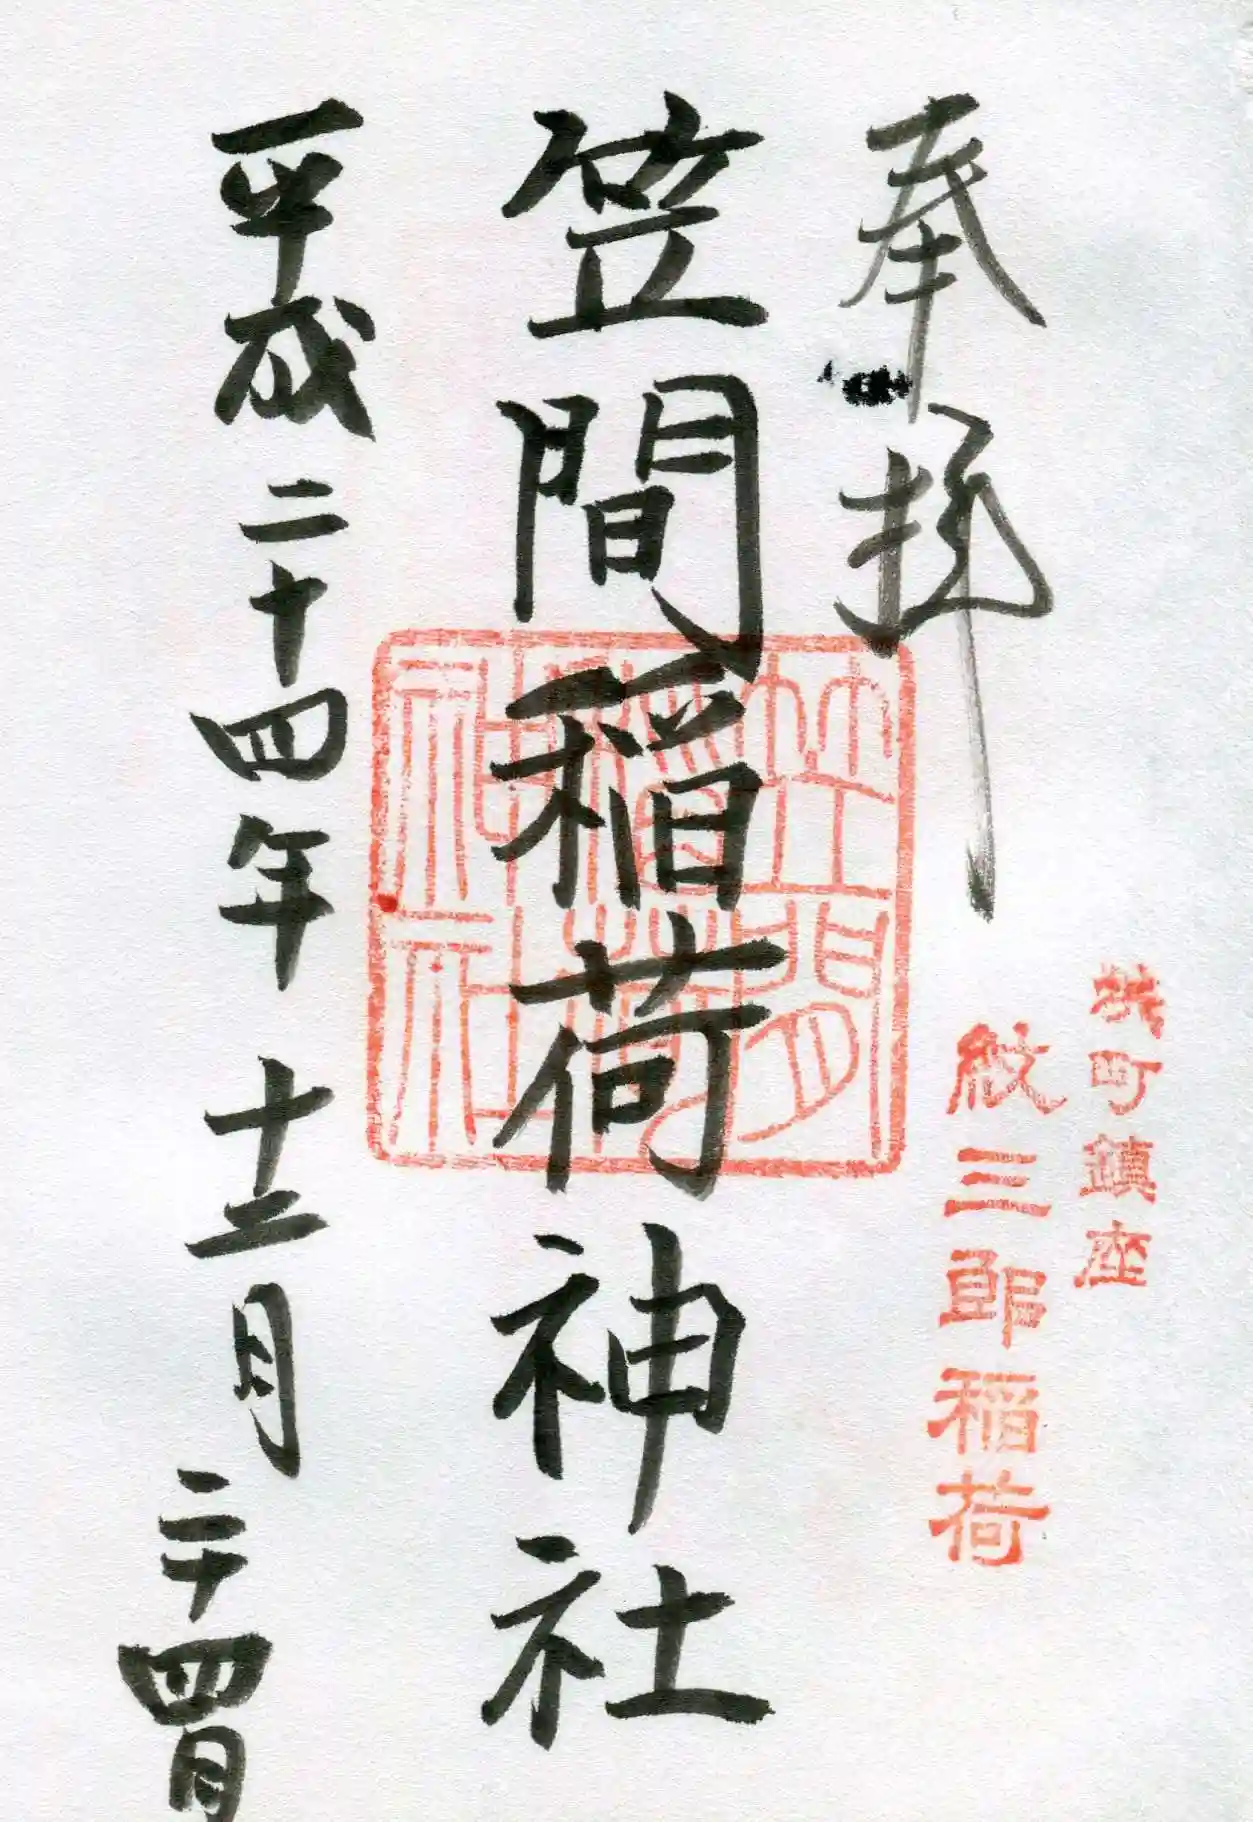 奉拝
町鎮座
紋三郎稲荷
笠間稲荷神社
笠間
稲荷
神社
平成二十四年十二月二十四日